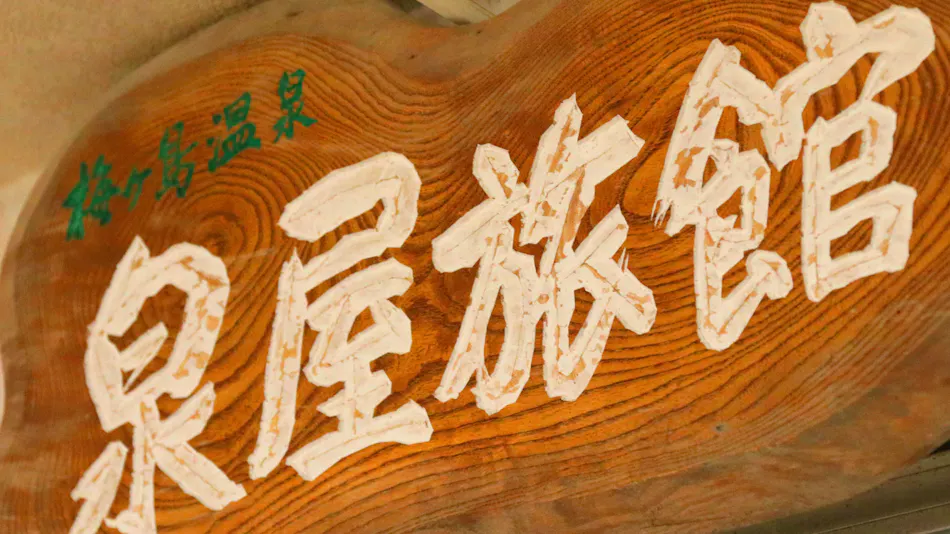 梅ケ島温泉
泉屋旅館